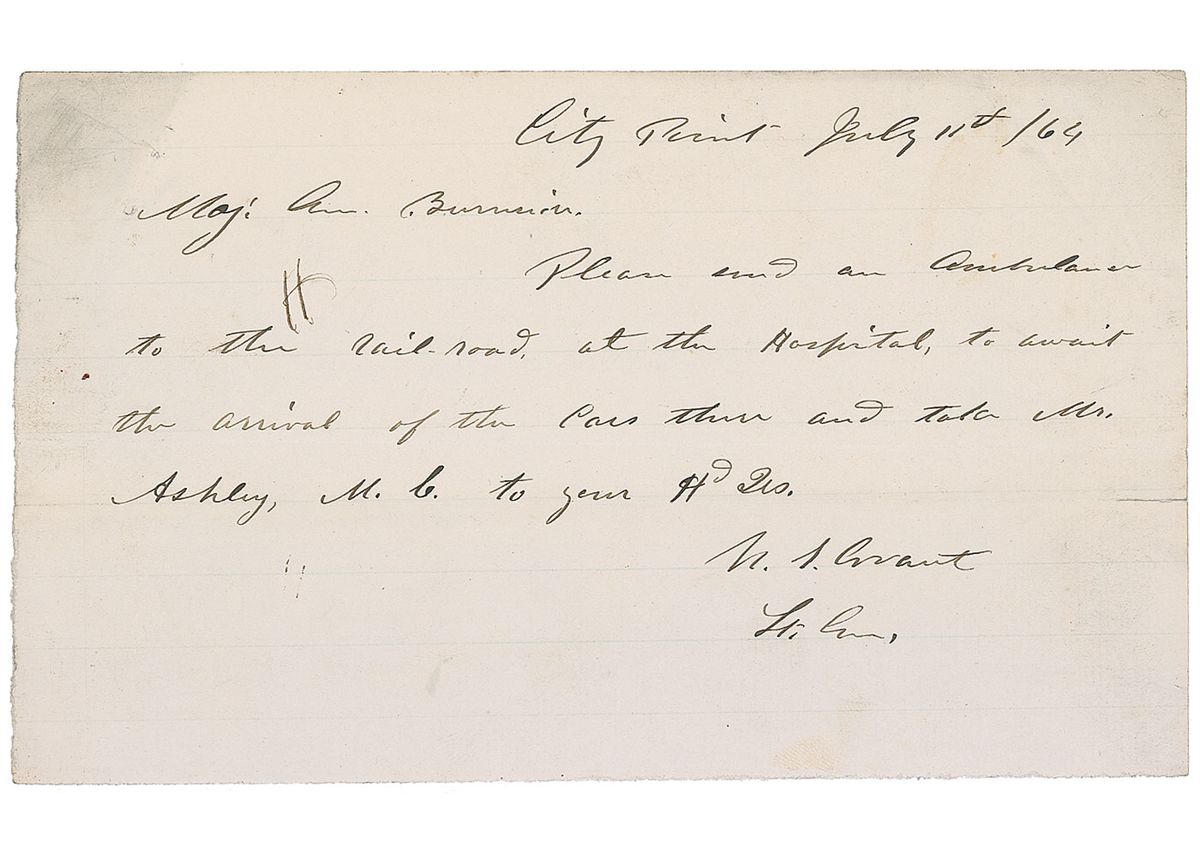 City Point July 11th /64
Maj. Gen. Burnside.
Please send an Ambulance
H
to the rail-road, at the Hospital, to await
the arrival of the Cars there and take Mr.
Ashley, M. C. to your Hd Qrs.
U. S. Grant
Lt. Gen.